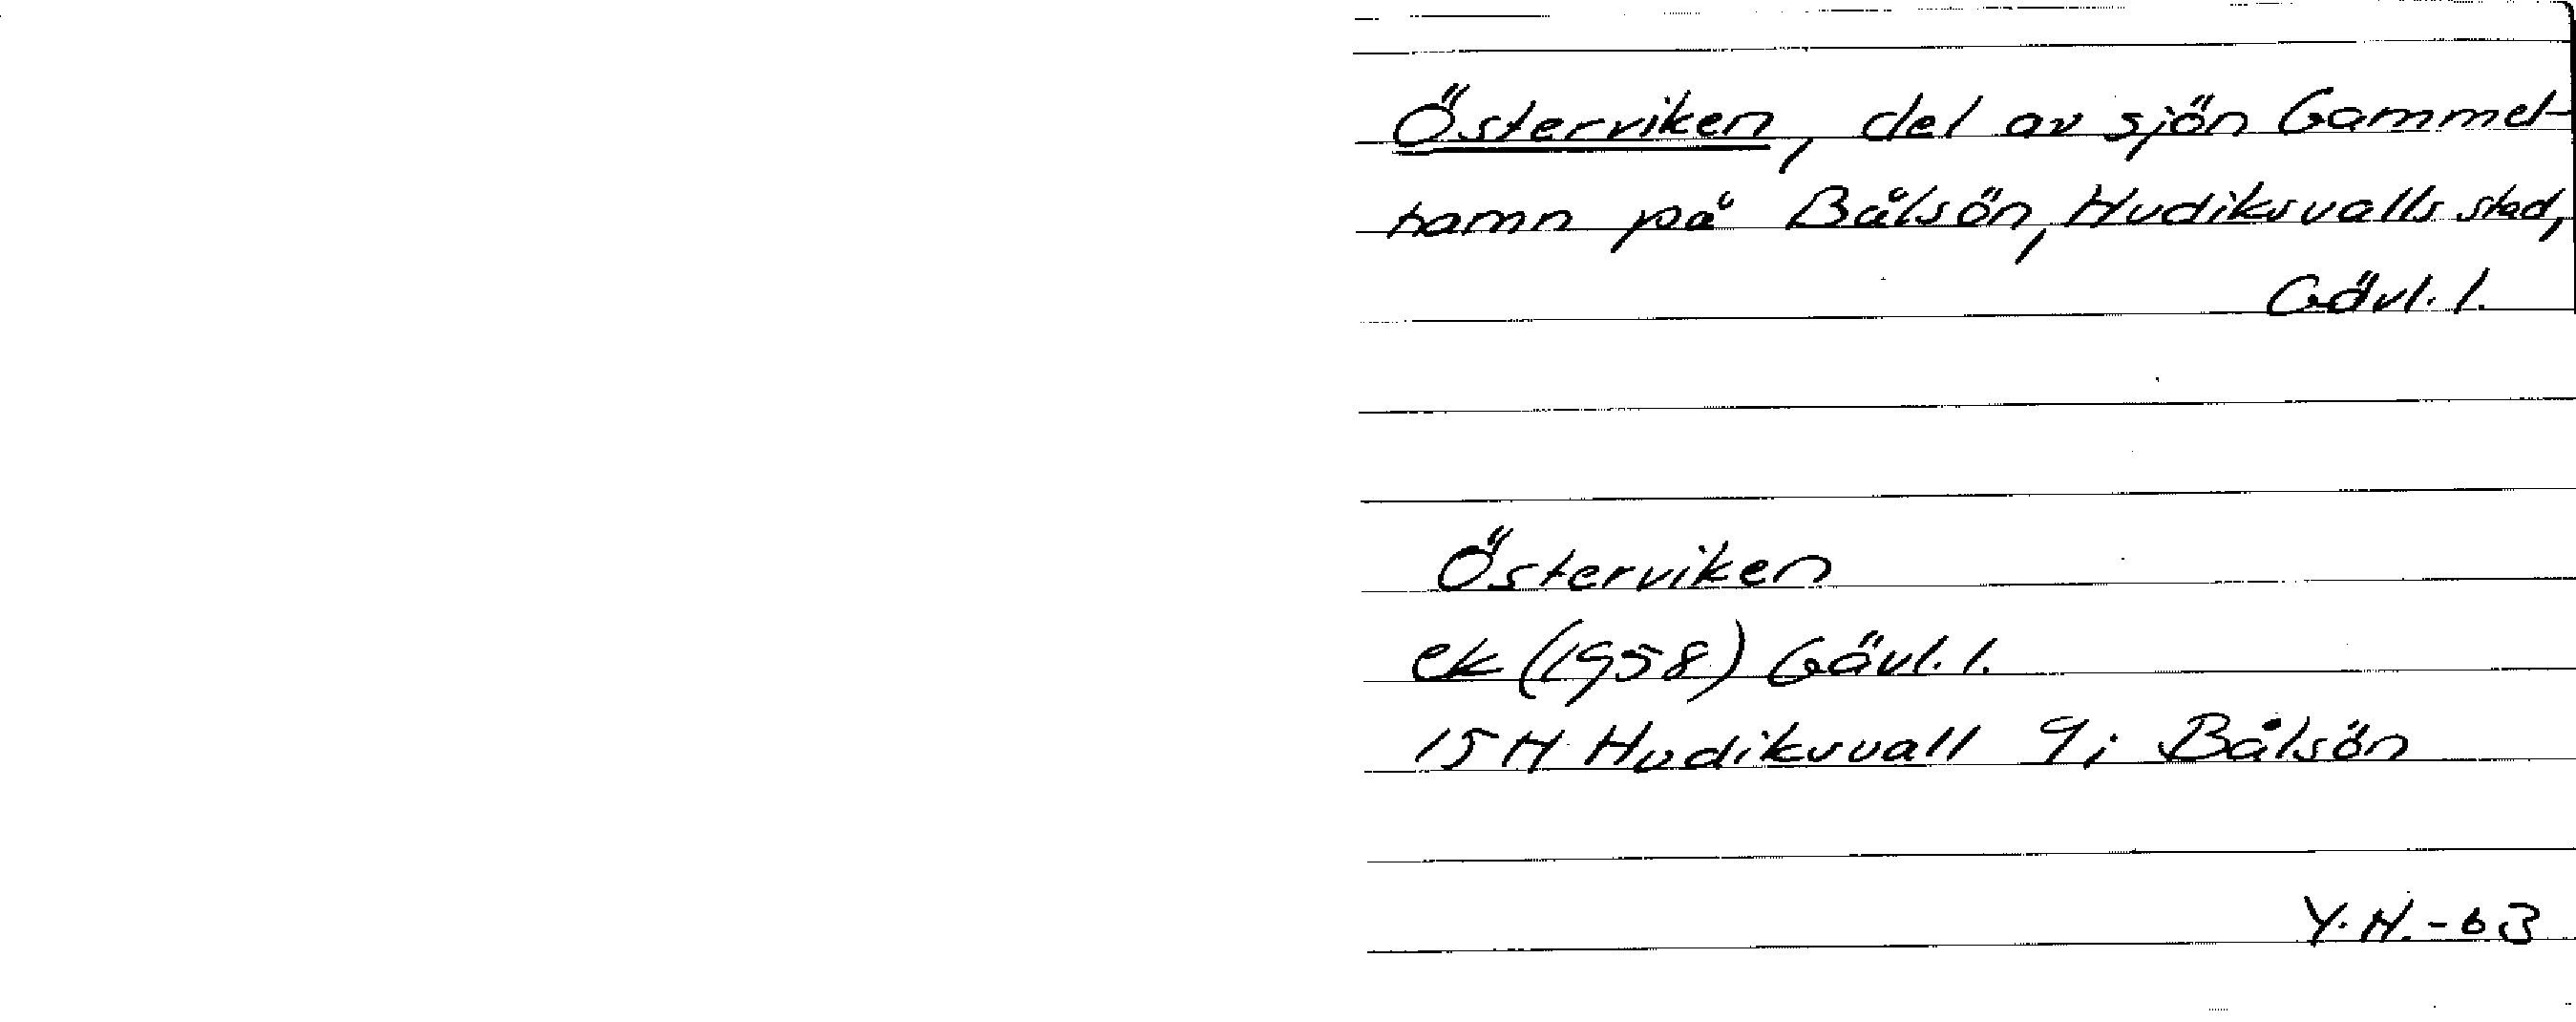 Österviken, del av sjön Gammel-
hamn på Bålsön, Hudiksvalls stad,
Gävl. l.
Österviken
ek (1958) Gävl. l.
15H Hudiksvall 9i Bålsön
Y.H.-63